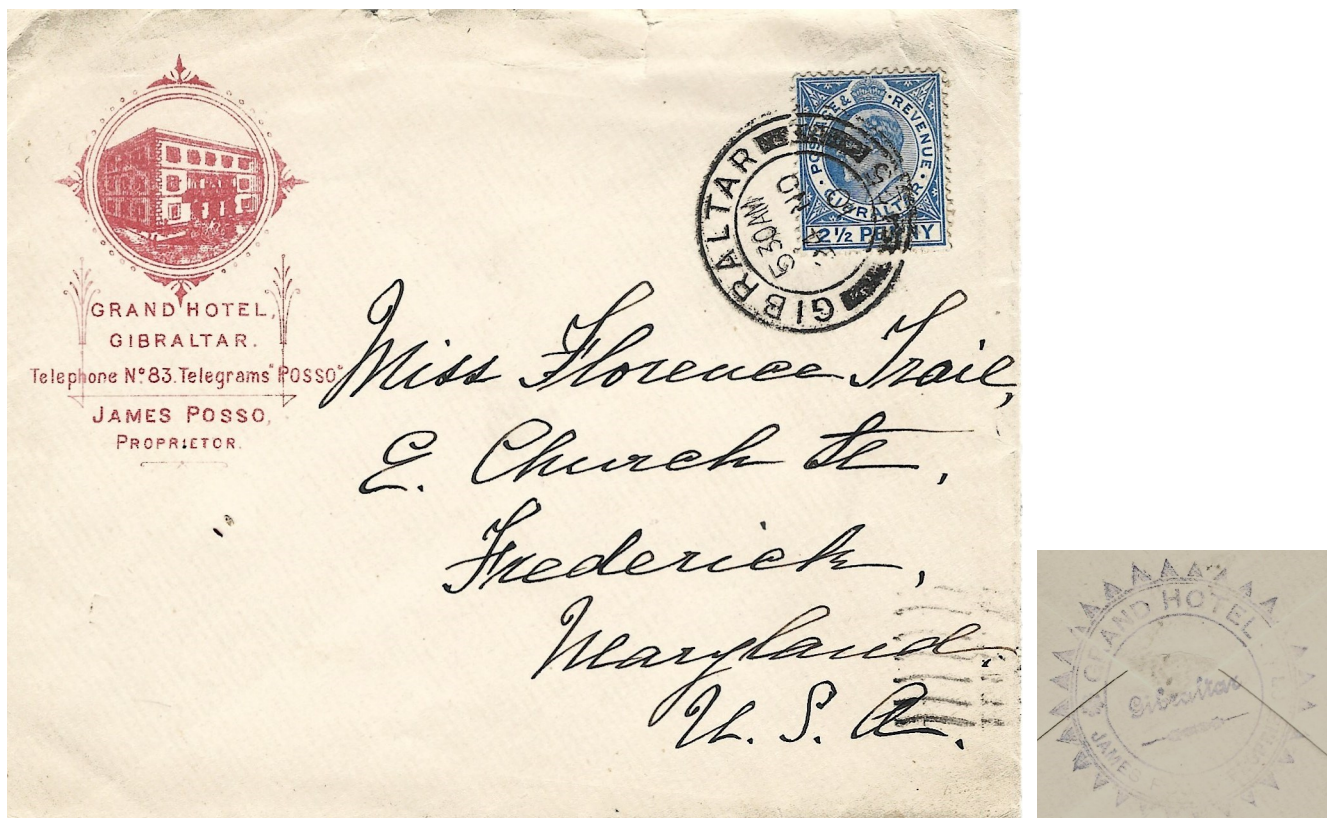 GRAND HOTEL,
GIBRALTAR.
Telephone Nº 83. Telegrams "POSSO"
JAMES POSSO,
PROPRIETOR.
POSTAGE & REVENUE
GIBRALTAR
2½ PENNY
GIBRALTAR
5 30 AM
NO
Miss Florence Trail,
E. Church St,
Frederick,
Maryland,
U. S. A.
GRAND HOTEL
Gibraltar
JAMES